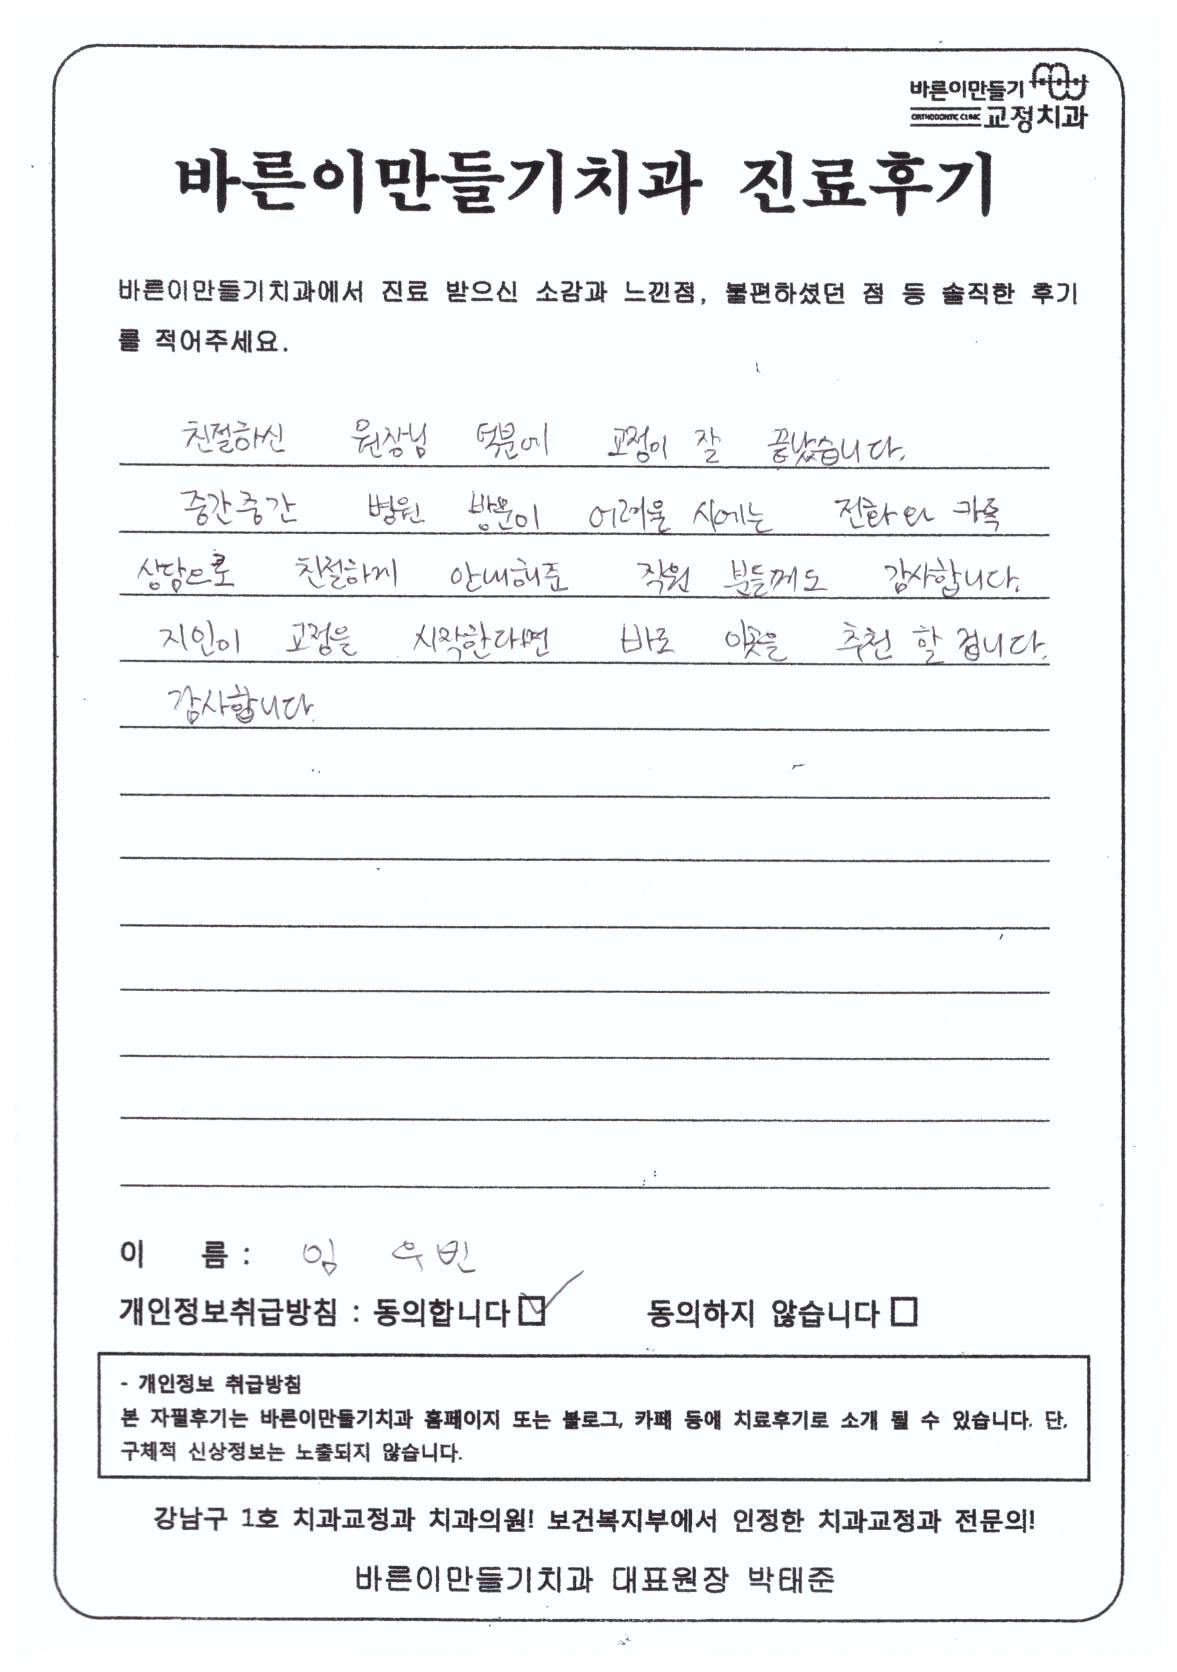 바른이만들기
ORTHODONTIC CLINIC 교정치과
바른이만들기치과 진료후기
바른이만들기치과에서 진료 받으신 소감과 느낀점, 불편하셨던 점 등 솔직한 후기
를 적어주세요.
친절하신 원장님 덕분에 교정이 잘 끝났습니다.
중간중간 병원 방문이 어려울 시에는 전화와 카톡
상담으로 친절하게 안내해준 직원 분들께도 감사합니다.
지인이 교정을 시작한다면 바로 이곳을 추천 할 겁니다.
감사합니다.
이 름 : 임 우빈
개인정보취급방침 : 동의합니다 동의하지 않습니다
- 개인정보 취급방침
본 자필후기는 바른이만들기치과 홈페이지 또는 블로그, 카페 등에 치료후기로 소개 될 수 있습니다. 단,
구체적 신상정보는 노출되지 않습니다.
강남구 1호 치과교정과 치과의원! 보건복지부에서 인정한 치과교정과 전문의!
바른이만들기치과 대표원장 박태준